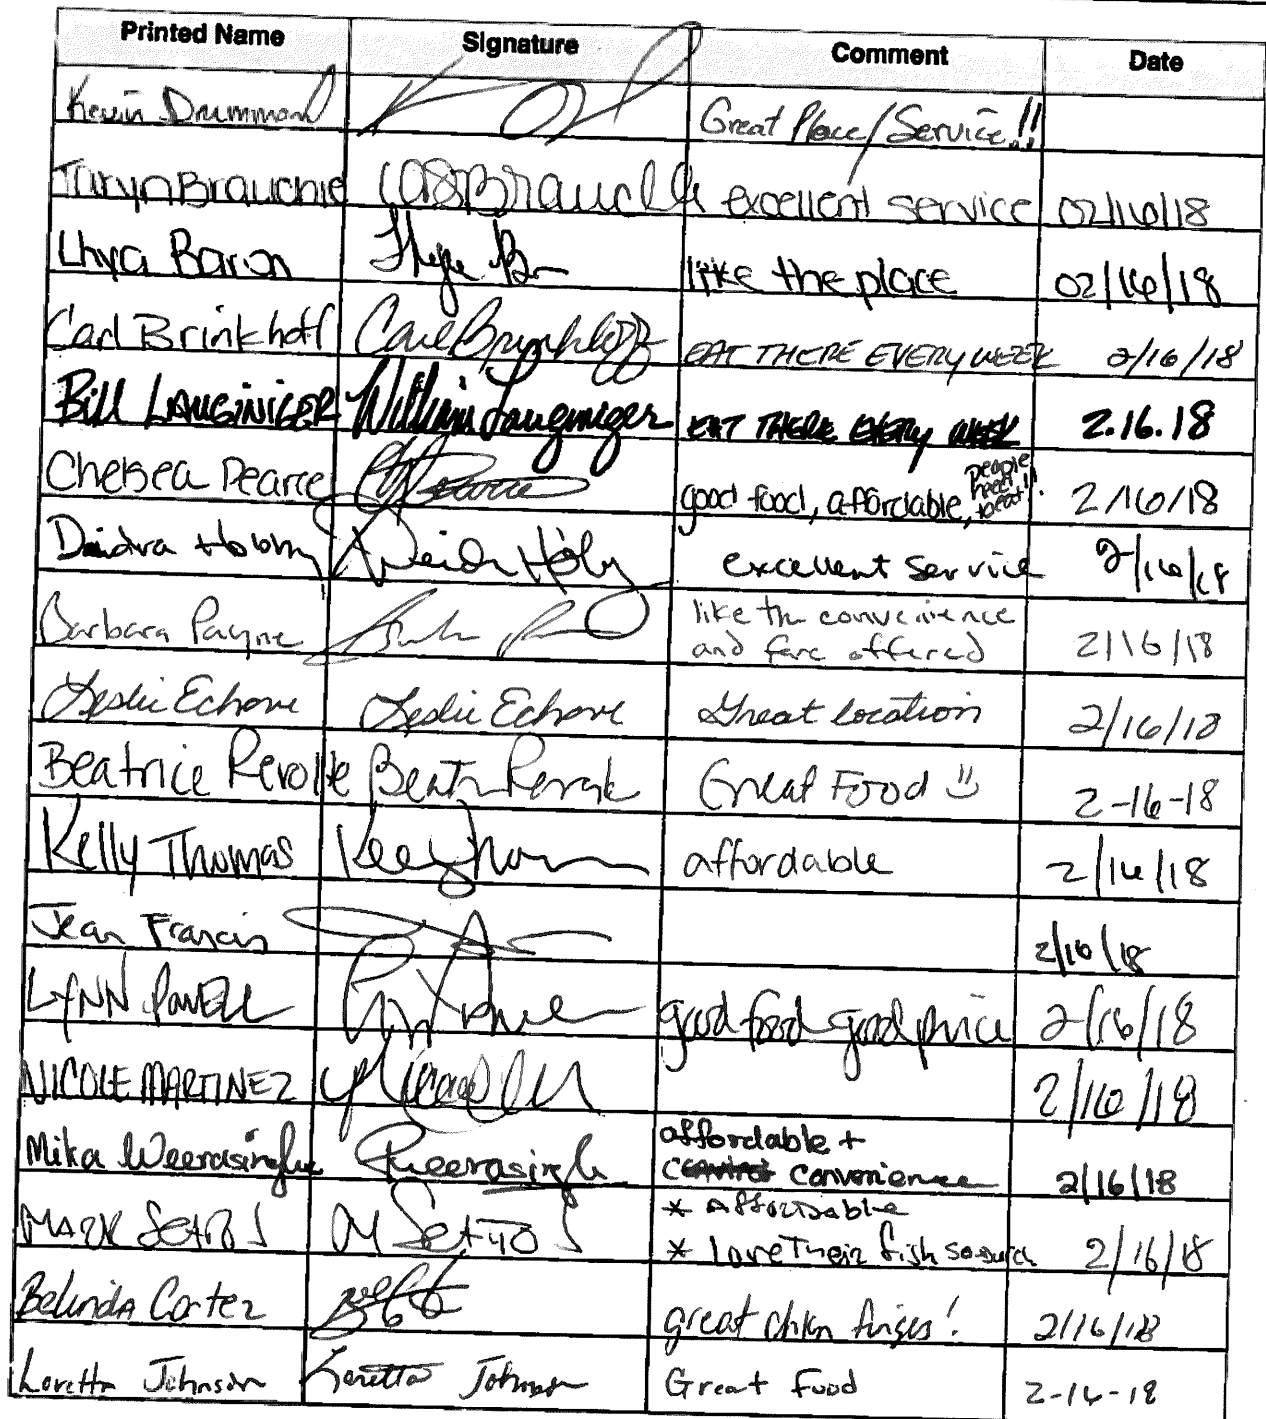 Printed Name Signature Comment Date
Kevin Drummond Great Place/Service!!
Taryn Brauchle excellent service 02/16/18
Baron like the place 02/16/18
Carl Brinkhoff Carl Brinkhoff EAT THERE EVERY WEEK 2/16/18
Bill LAUGINIGER William Lauginiger EAT THERE EVERY WEEK 2.16.18
Chelsea Pearce good food, affordable, people need to eat!! 2/16/18
Deidra excellent service 2/16/18
Barbara Payne like the convenience
and fare offered 2/16/18
Leslie Echove Leslie Echove Great location 2/16/18
Beatrice Great Food 2-16-18
Kelly Thomas affordable 2/16/18
Jean Francis 2/16/18
LYNN POWELL good food good price 2/16/18
NICOLE MARTINEZ 2/16/18
Mika Weerasinghe affordable +
convenience 2/16/18
MARK * Affordable
* Love Their fish 2/16/18
Belinda Cortez great chkn 2/16/18
Loretta Johnson Loretta Johnson Great food 2-16-18